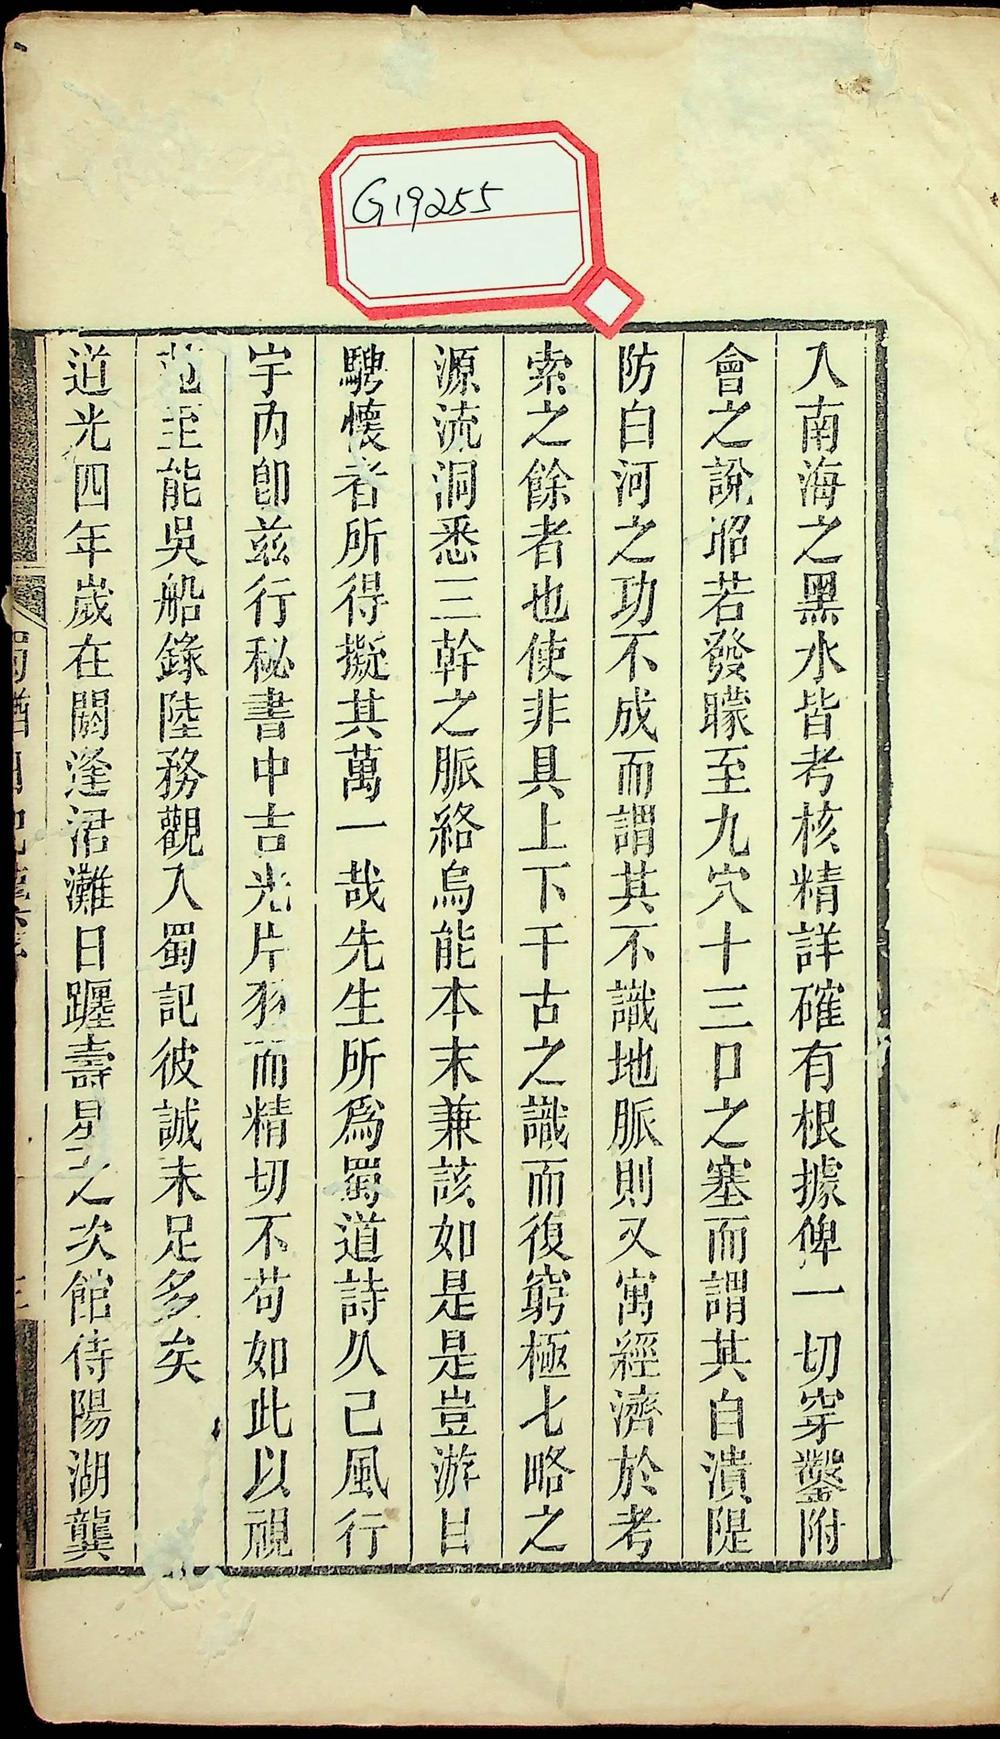 G19255
入南海之黑水皆考核精詳確有根據俾一切穿鑿附
會之說昭若發矇至九穴十三口之塞而謂其自潰隄
防白河之功不成而謂其不識地脈則又寓經濟於考
索之餘者也使非具上下千古之識而復窮極七略之
源流洞悉三幹之脈絡烏能本末兼該如是是豈游目
騁懷者所得擬其萬一哉先生所爲蜀道詩久已風行
宇內卽茲行秘書中吉光片羽而精切不苟如此以視
范至能吳船錄陸務觀入蜀記彼誠未足多矣
道光四年歲在閼逢涒灘日躔壽星之次館侍陽湖龔